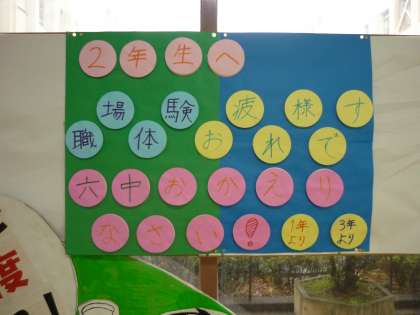 2年生へ
職場体験お疲れ様です
六中おかえり
なさい! 1年より 3年より
度